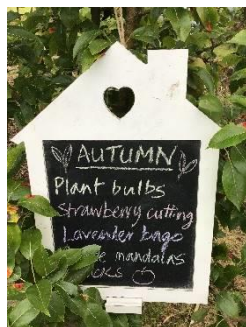 AUTUMN
Plant bulbs
Strawberry cutting
Lavender bags
mandalas